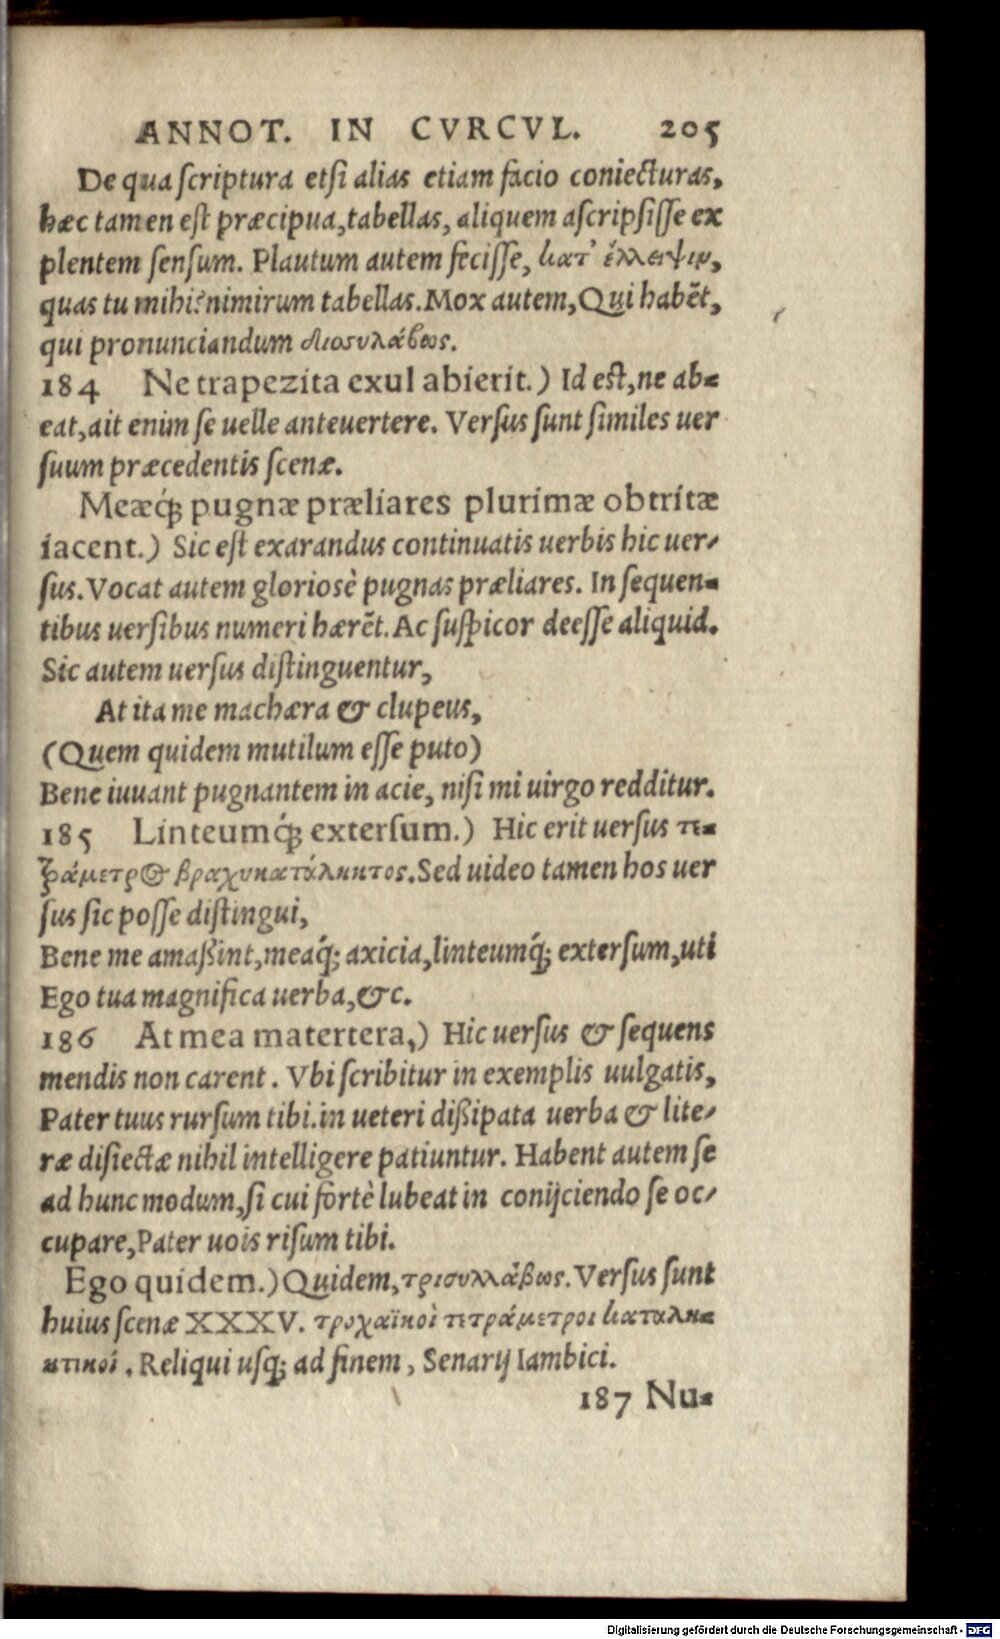 ANNOT. IN CVRCVL. 205
De qua scriptura etsi alias etiam facio coniecturas,
hæc tamen est præcipua, tabellas, aliquem ascripsisse ex
plentem sensum. Plautum autem fecisse, κατ' ἔλλειψιν,
quas tu mihi? nimirum tabellas. Mox autem, Qui habēt,
qui pronunciandum δισσυλάβως.
184 Ne trapezita exul abierit.) Id est, ne ab-
eat, ait enim se uelle anteuertere. Versus sunt similes uer
suum præcedentis scenæ.
Meæq́; pugnæ præliares plurimæ obtritæ
iacent.) Sic est exarandus continuatis uerbis hic uer-
sus. Vocat autem gloriosè pugnas præliares. In sequen-
tibus uersibus numeri hærēt. Ac suspicor deesse aliquid.
Sic autem uersus distinguentur,
At ita me machæra & clupeus,
(Quem quidem mutilum esse puto)
Bene iuuant pugnantem in acie, nisi mi uirgo redditur.
185 Linteumq́; extersum.) Hic erit uersus τε-
τράμετρος βραχυκατάληκτος. Sed uideo tamen hos uer
sus sic posse distingui,
Bene me amaßint, meaq́; axicia, linteumq́; extersum, uti
Ego tua magnifica uerba, &c.
186 At mea matertera,) Hic uersus & sequens
mendis non carent. Vbi scribitur in exemplis uulgatis,
Pater tuus rursum tibi. in ueteri dißipata uerba & lite-
ræ disiectæ nihil intelligere patiuntur. Habent autem se
ad hunc modum, si cui fortè lubeat in conijciendo se oc-
cupare, Pater uois risum tibi.
Ego quidem.) Quidem, τρισυλλάβως. Versus sunt
huius scenæ XXXV. τροχαϊκοὶ τετράμετροι καταλη-
κτικοί. Reliqui usq; ad finem, Senarij Iambici.
187 Nu-
Digitalisierung gefördert durch die Deutsche Forschungsgemeinschaft - DFG